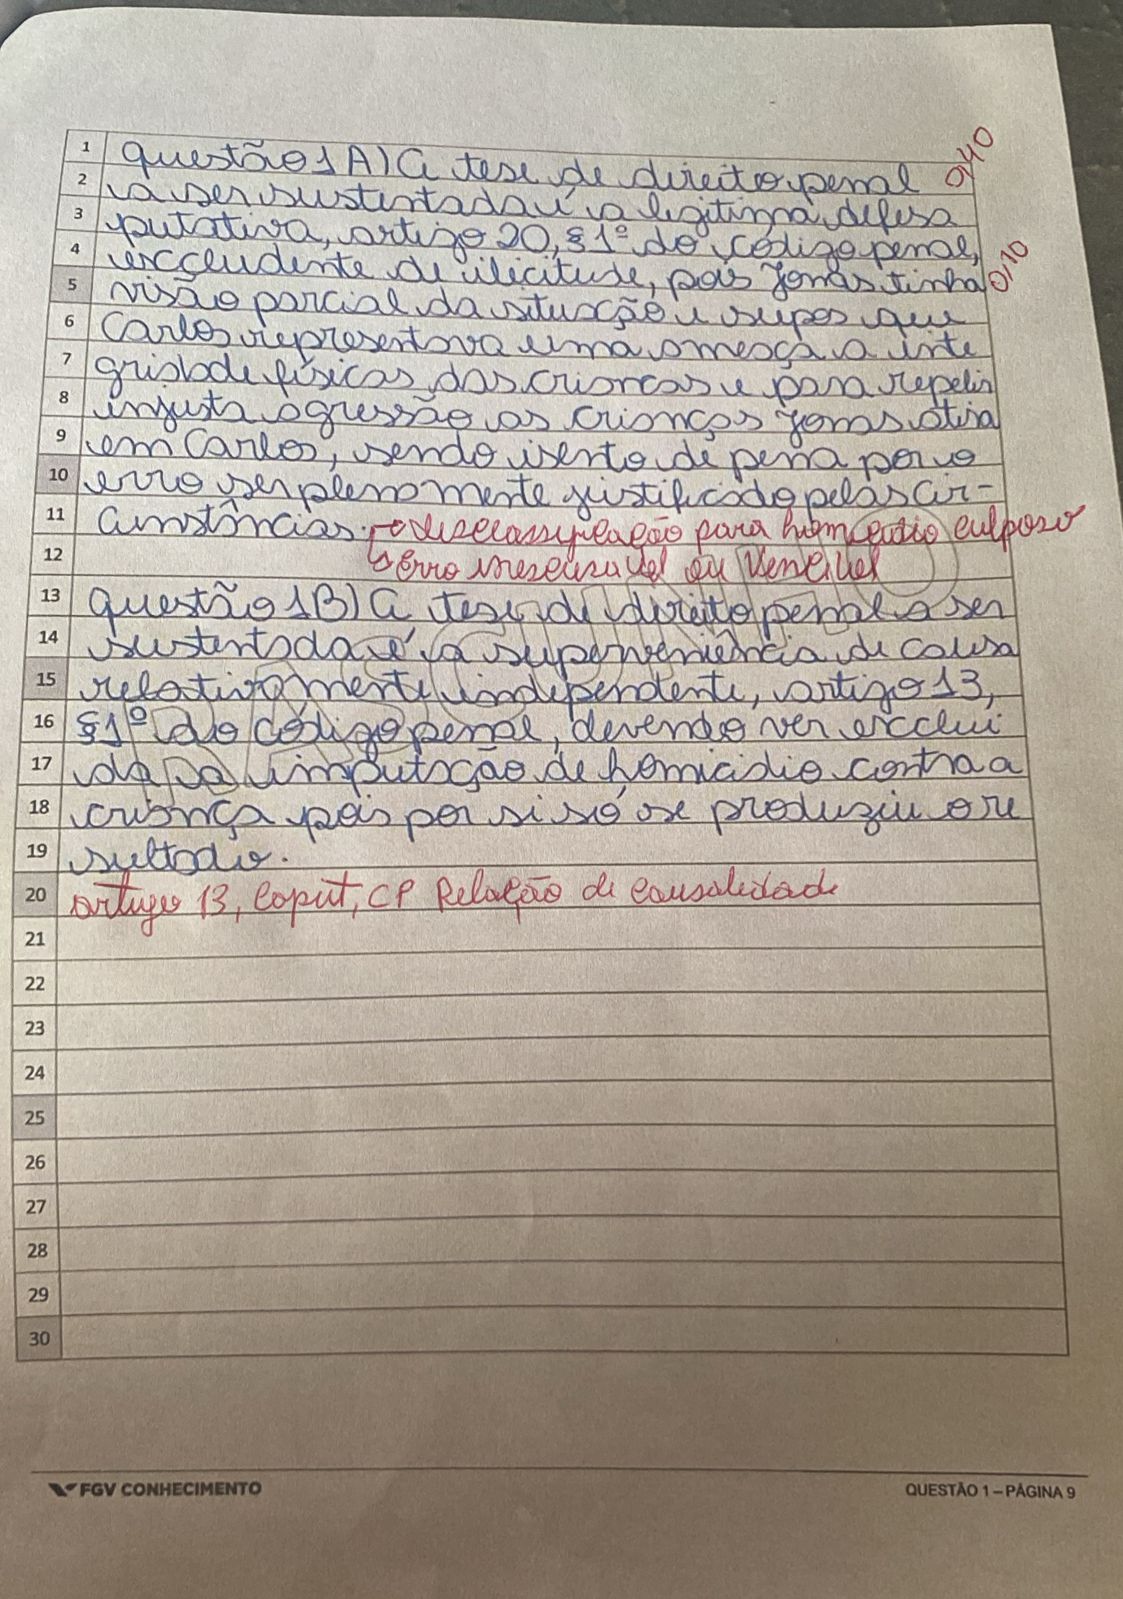 1 questão 1 A) A tese de direito penal 0,40
2 a ser sustentada é a legitima defesa
3 putativa, artigo 20, § 1º do código penal,
4 excludente de ilicitude, pois Jonas tinha 0,10
5 visão parcial da situação e supos que
6 Carlos representava uma ameaça a inte
7 gridade físicas das crianças e para repelir
8 injusta agressão as crianças Jonas atira
9 em Carlos, sendo isento de pena por o
10 erro ser plenamente justificado pelas cir-
11 cunstâncias. → desclassificação para homicídio culposo
12 ↳ erro inescusável ou Vencível
13 questão 1B) A tese de direito penal a ser
14 sustentada é a superveniência de causa
15 relativamente independente, artigo 13,
16 § 1º do código penal, devendo ver exclui
17 da a imputação de homicidio contra a
18 criança pois por si só se produziu o re
19 sultado.
20 artigo 13, caput, CP Relação de causalidade
21
22
23
24
25
26
27
28
29
30
FGV CONHECIMENTO
QUESTÃO 1 – PÁGINA 9